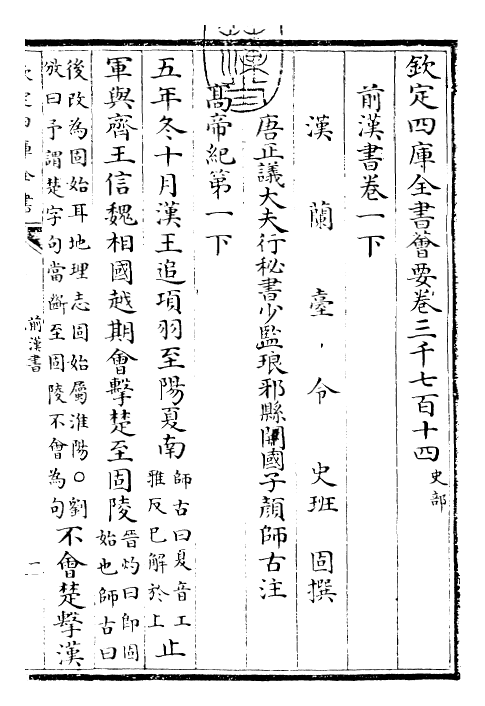 欽定四庫全書薈要卷三千七百十四 史部
前漢書卷一下
漢蘭臺令史班固撰
唐正議大夫行秘書少監琅邪縣開國子顔師古注
髙帝紀第一下
五年冬十月漢王追項羽至陽夏南 師古曰夏音工雅反已解於上 止
軍與齊王信魏相國越期會擊楚至固陵 晉灼曰即固始也師古曰
後改為固始耳地理志固始屬淮陽○劉攽曰予謂楚字句當斷至固陵不會為句 不會楚擊漢
欽定四庫全書
前漢書